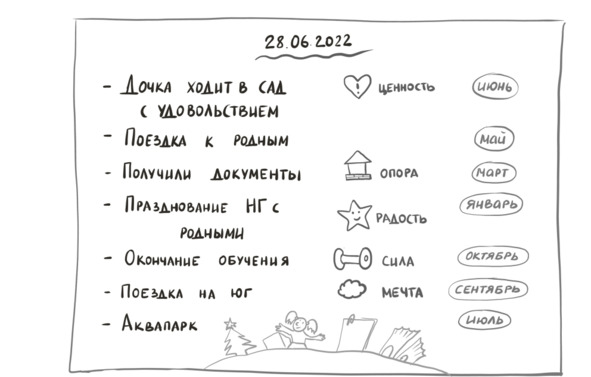 28.06.2022
- Дочка ходит в сад ценность июнь
с удовольствием
- Поездка к родным май
- Получили документы опора март
- Празднование НГ с радость январь
родными
- Окончание обучения сила октябрь
- Поездка на юг мечта сентябрь
- Аквапарк июль